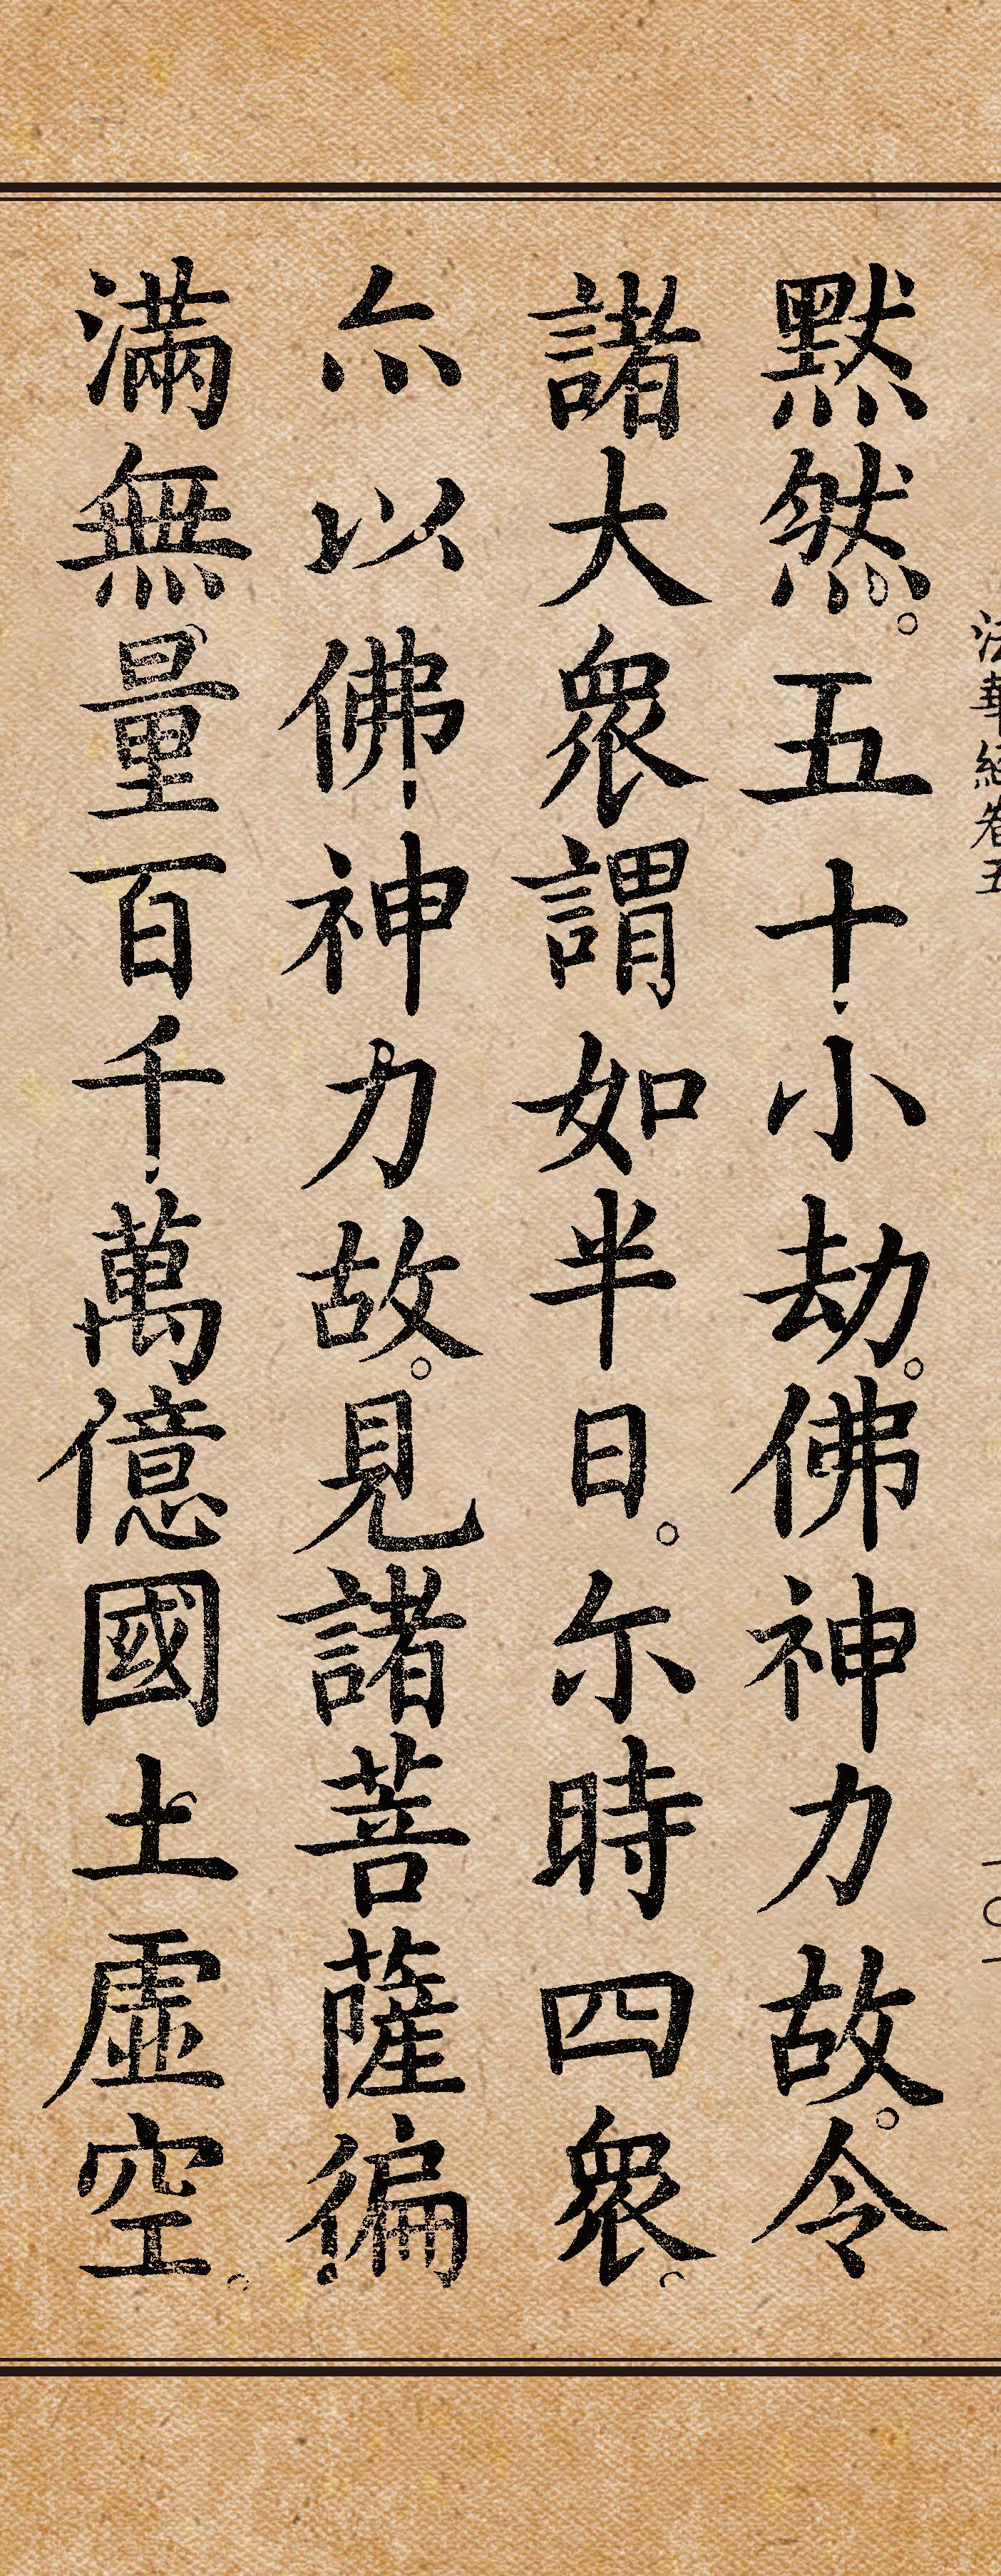 法華經卷五
一〇一
默然。五十小劫。佛神力故。令
諸大眾謂如半日。尒時四眾。
亦以佛神力故。見諸菩薩徧
滿無量百千萬億國土虛空。